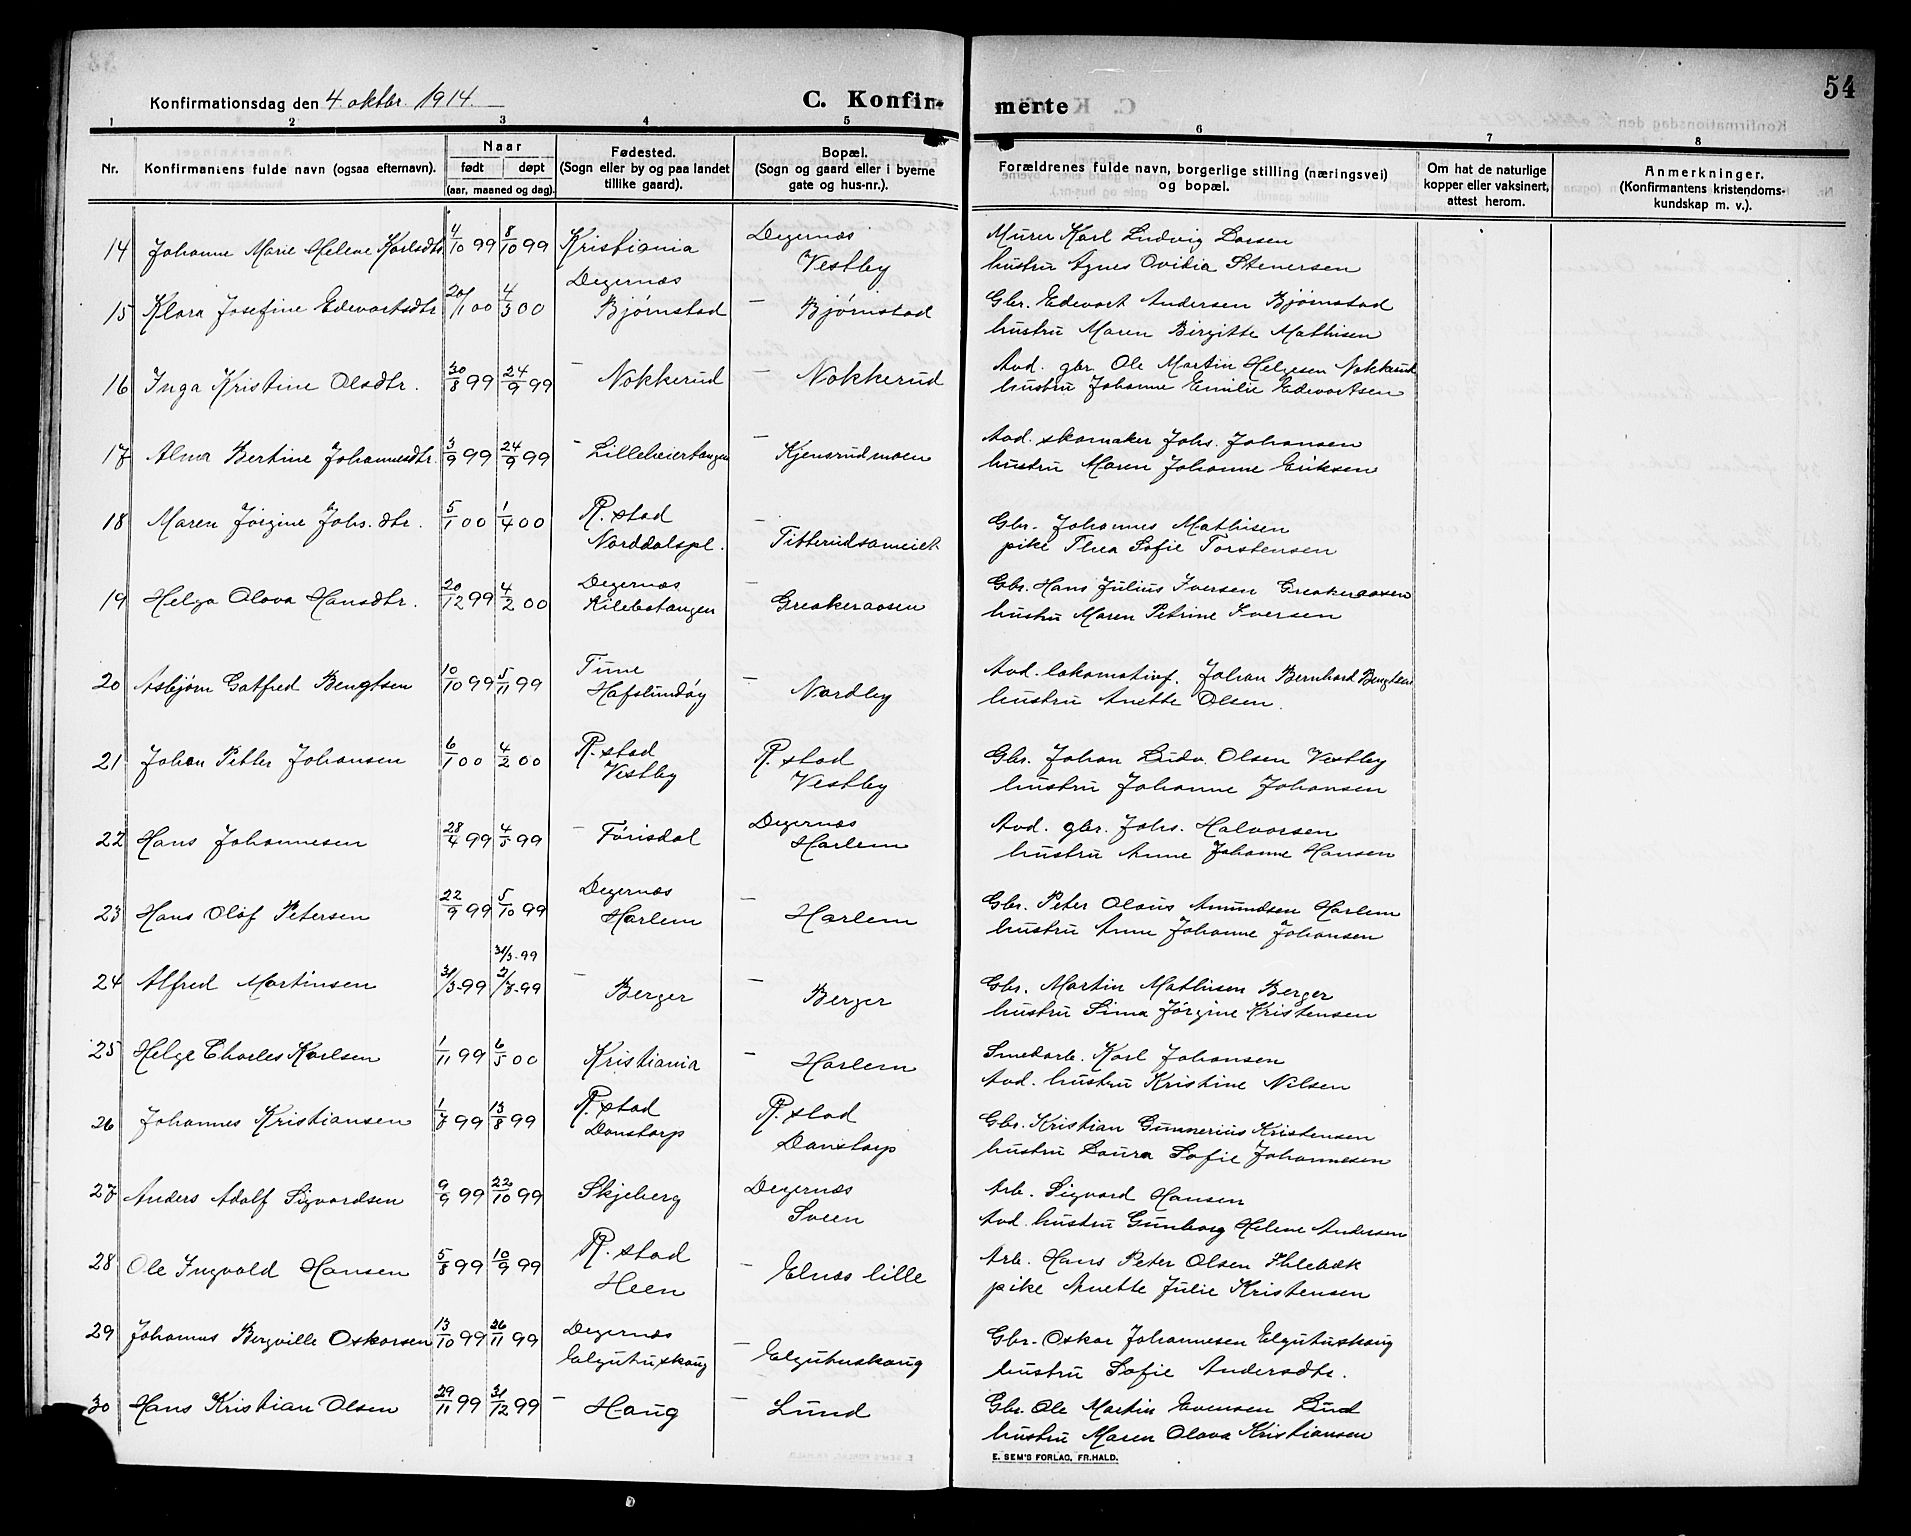 54
Konfirmationsdag den 4. oktbr. 1914.
C. Konfir- merte
1 2 3 4 5 6 7 8
Nr. Konfirmantens fulde navn (ogsaa efternavn). Naar født døpt (aar, maaned og dag). Fødested. (Sogn eller by og paa landet tillike gaard). Bopæl. (Sogn og gaard eller i byerne gate og hus-nr.). Forældrenes fulde navn, borgerlige stilling (næringsvei) og bopæl. Om hat de naturlige kopper eller vaksinert, attest herom. Anmerkninger. (Konfirmantens kristendoms-kundskap m. v.).
14 Johanne Marie Helene Karlsdtr 4/10 99 8/10 99 Kristiania Degernæs Vestby Murer Karl Ludvig Larsen
hustru Agnes Ovidia Stenersen
15 Klara Josefine Edevartsdtr 20/1 00 4/3 00 Degernæs Bjørnstad — Bjørnstad Gbr. Edevart Andersen Bjørnstad
hustru Maren Birgitte Mathisen
16 Inga Kristine Olsdtr. 30/8 99 24/9 99 — Nokkerud — Nokkerud Avd. gbr. Ole Martin Helgesen Nokkerud
hustru Johanne Emilie Edevartsen
17 Alma Bertine Johannesdtr. 3/9 99 24/9 99 — Lilleheiertangen — Kjensrudmoen Avd. skomaker Johs. Johansen
hustru Maren Johanne Eriksen
18 Maren Jørgine Johs.dtr. 5/1 00 1/4 00 R.stad Norddalspl. — Titterudsameiet Gbr. Johannes Mathisen
pike Thea Sofie Torstensen
19 Helga Olava Hansdtr. 20/12 99 4/2 00 Degernæs Kilebotangen — Greakeraasen Gbr. Hans Julius Iversen Greakeraasen
hustru Maren Petrine Iversen
20 Asbjørn Gotfred Bengtsen 10/10 99 5/11 99 Tune Hafslundøy — Nordby Avd. lokomotivf. Johan Bernhard Bengtsen
hustru Anette Olsen.
21 Johan Petter Johansen 6/1 00 4/2 00 R.stad Vestby R.stad Vestby Gbr. Johan Ludv. Olsen Vestby
hustru Johanne Johansen
22 Hans Johannesen 28/4 99 4/5 99 — Førisdal Degernæs Harlem Avd. gbr. Johs. Halvorsen
hustru Anne Johanne Hansen
23 Hans Olof Petersen 22/9 99 5/10 99 Degernæs Harlem — Harlem Gbr. Peter Olaus Amundsen Harlem
hustru Anne Johanne Johansen
31/3-99
24 Alfred Martinsen 31/3-99 2/7-99 — Berger — Berger Gbr. Martin Mathisen Berger
hustru Sina Jørgine Kristensen
25 Helge Charles Karlsen 1/11 99 6/5 00 Kristiania — Harlem Smedarb. Karl Johansen
Avd. hustru Kristine Nilsen
26 Johannes Kristiansen 1/7 99 13/8 99 R.stad Danstorp R.stad Danstorp Gbr. Kristian Gunnerius Kristensen
hustru Laura Sofie Johannesen
27 Anders Adolf Sigvardsen 9/9 99 22/10 99 Skjeberg Degernæs Sveen Arb. Sigvard Hansen
Avd. hustru Gunborg Helene Andersen
28 Ole Ingvald Hansen 5/8 99 10/9 99 R.stad Heen — Elnes lille Arb. Hans Peter Olsen Ihlebæk
pike Anette Julie Kristensen
29 Johannes Bergville Oskarsen 13/10 99 26/11 99 Degernæs Elgutuskaug — Elgutuskaug Gbr. Oskar Johannesen Elgutuskaug
hustru Sofie Andersdtr.
30 Hans Kristian Olsen 29/11 99 31/12 99 — Haug — Lund Gbr. Ole Martin Evensen Lund
hustru Maren Olava Kristiansen
E. SEM'S FORLAG, FR.HALD.